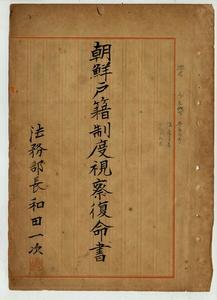 朝鮮戸籍制度視察復命書
法務部長 和田一次